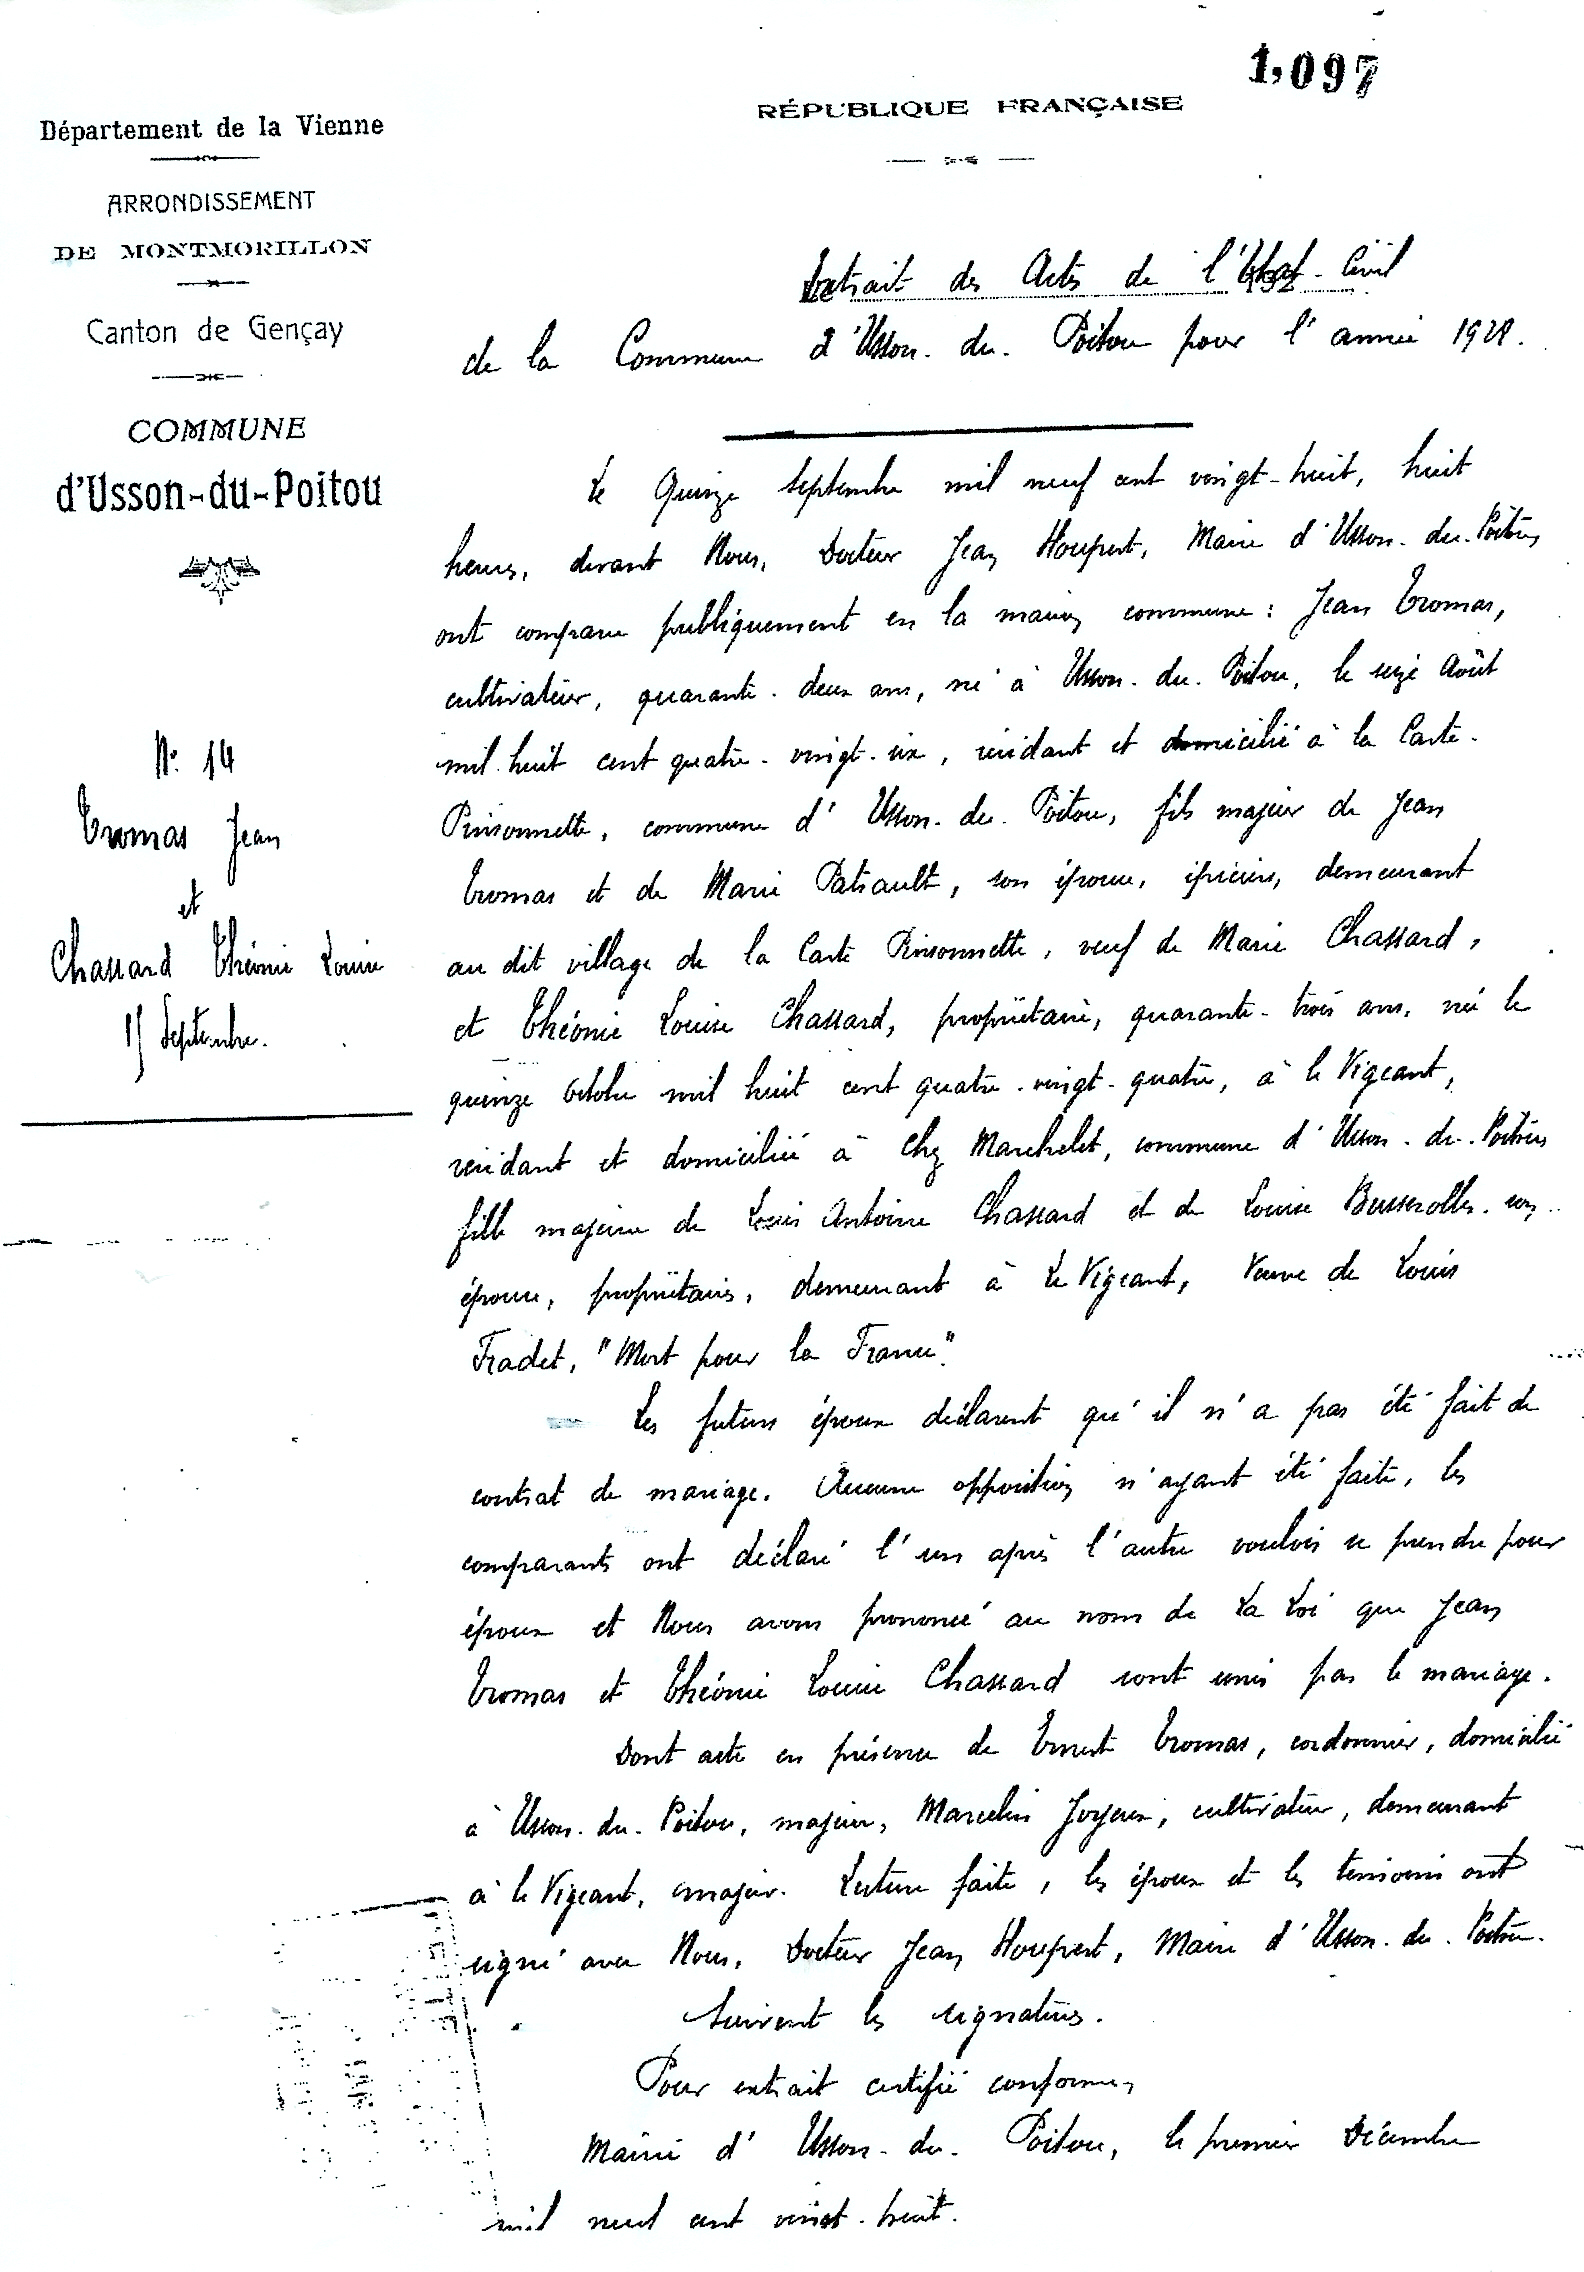 1,097
RÉPUBLIQUE FRANÇAISE
Département de la Vienne
ARRONDISSEMENT
DE MONTMORILLON
Canton de Gençay
COMMUNE
d'Usson-du-Poitou
N° 14
Tromas Jean
et
Chassard Théonie Louise
15 Septembre.
Extrait des Actes de l'État-Civil
de la Commune d'Usson-du-Poitou pour l'année 1928.
Le Quinze Septembre mil neuf cent vingt-huit, huit
heures, devant Nous, Docteur Jean Houpert, Maire d'Usson-du-Poitou,
ont comparu publiquement en la maison commune : Jean Tromas,
cultivateur, quarante-deux ans, né à Usson-du-Poitou, le seize Août
mil-huit cent quatre-vingt-six, résidant et domicilié à la Carte-
Pinsonnette, commune d'Usson-du-Poitou, fils majeur de Jean
Tromas et de Marie Patrault, son épouse, épiciers, demeurant
au dit village de la Carte Pinsonnette, veuf de Marie Chassard,
et Théonie Louise Chassard, propriétaire, quarante-trois ans, née le
quinze Octobre mil huit cent quatre-vingt-quatre, à le Vigeant,
résidant et domiciliée à Chez Marchelet, commune d'Usson-du-Poitou
fille majeure de Louis Antoine Chassard et de Louise Busserolles son
épouse, propriétaires, demeurant à Le Vigeant, Veuve de Louis
Fradet, "Mort pour la France".
Les futurs époux déclarent qu'il n'a pas été fait de
contrat de mariage. Aucune opposition n'ayant été faite, les
comparants ont déclaré l'un après l'autre vouloir se prendre pour
époux et Nous avons prononcé au nom de La Loi que Jean
Tromas et Théonie Louise Chassard sont unis par le mariage.
Dont acte en présence de Ernest Tromas, cordonnier, domicilié
à Usson-du-Poitou, majeur, Marcelin Joyeux, cultivateur, demeurant
à le Vigeant, majeur. Lecture faite, les époux et les témoins ont
signé avec Nous, Docteur Jean Houpert, Maire d'Usson-du-Poitou.
Suivent les signatures.
Pour extrait certifié conforme,
Mairie d'Usson-du-Poitou, le premier Décembre
mil neuf cent vingt-huit.